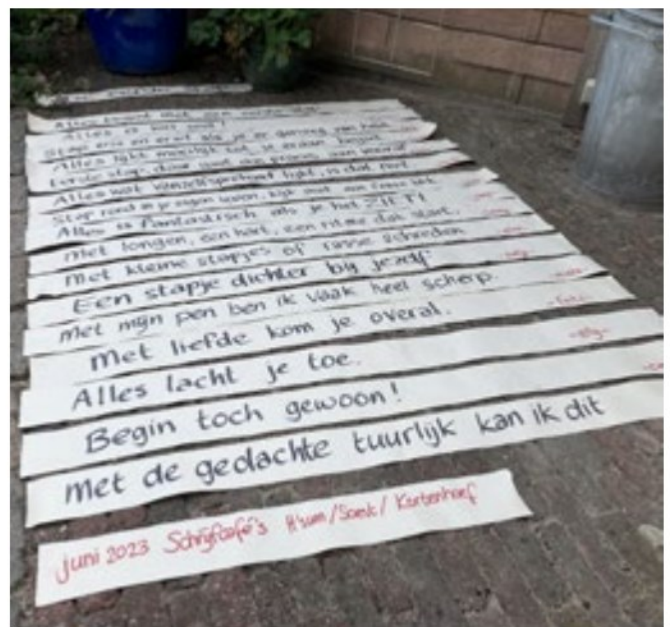 Alles begint met een eerste stap.
Alles is
Stap erin en eruit als je er genoeg van hebt
Alles lijkt moeilijk tot je eraan begint
Eerste stap, door
Alles wat vanzelfsprekend lijkt, is dat niet
Stap rond in je eigen leven, kijk
Alles is fantastisch als je het ZIET!
Met longen, een hart, een ritme dat start.
Met kleine stapjes of rasse schreden
Een stapje dichter bij jezelf
Met mijn pen ben ik vaak heel scherp.
Met liefde kom je overal.
Alles lacht je toe.
Begin toch gewoon!
Met de gedachte tuurlijk kan ik dit
juni 2023 Schrijfcafé's H'sum/Soest/Kortenhoef